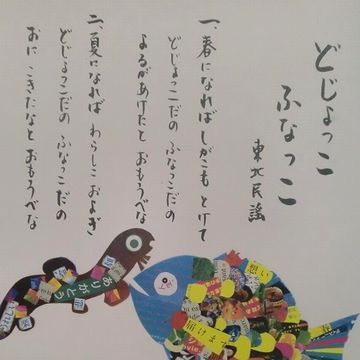 どじょっこ
ふなっこ
東北民謡
一、春になれば しがこも とけて
どじょっこだの ふなっこだの
よるがあけたと おもうべな
二、夏になれば わらしこ およぎ
どじょっこだの ふなっこだの
おに こきたなと おもうべな
ありがとう
想い
届けま